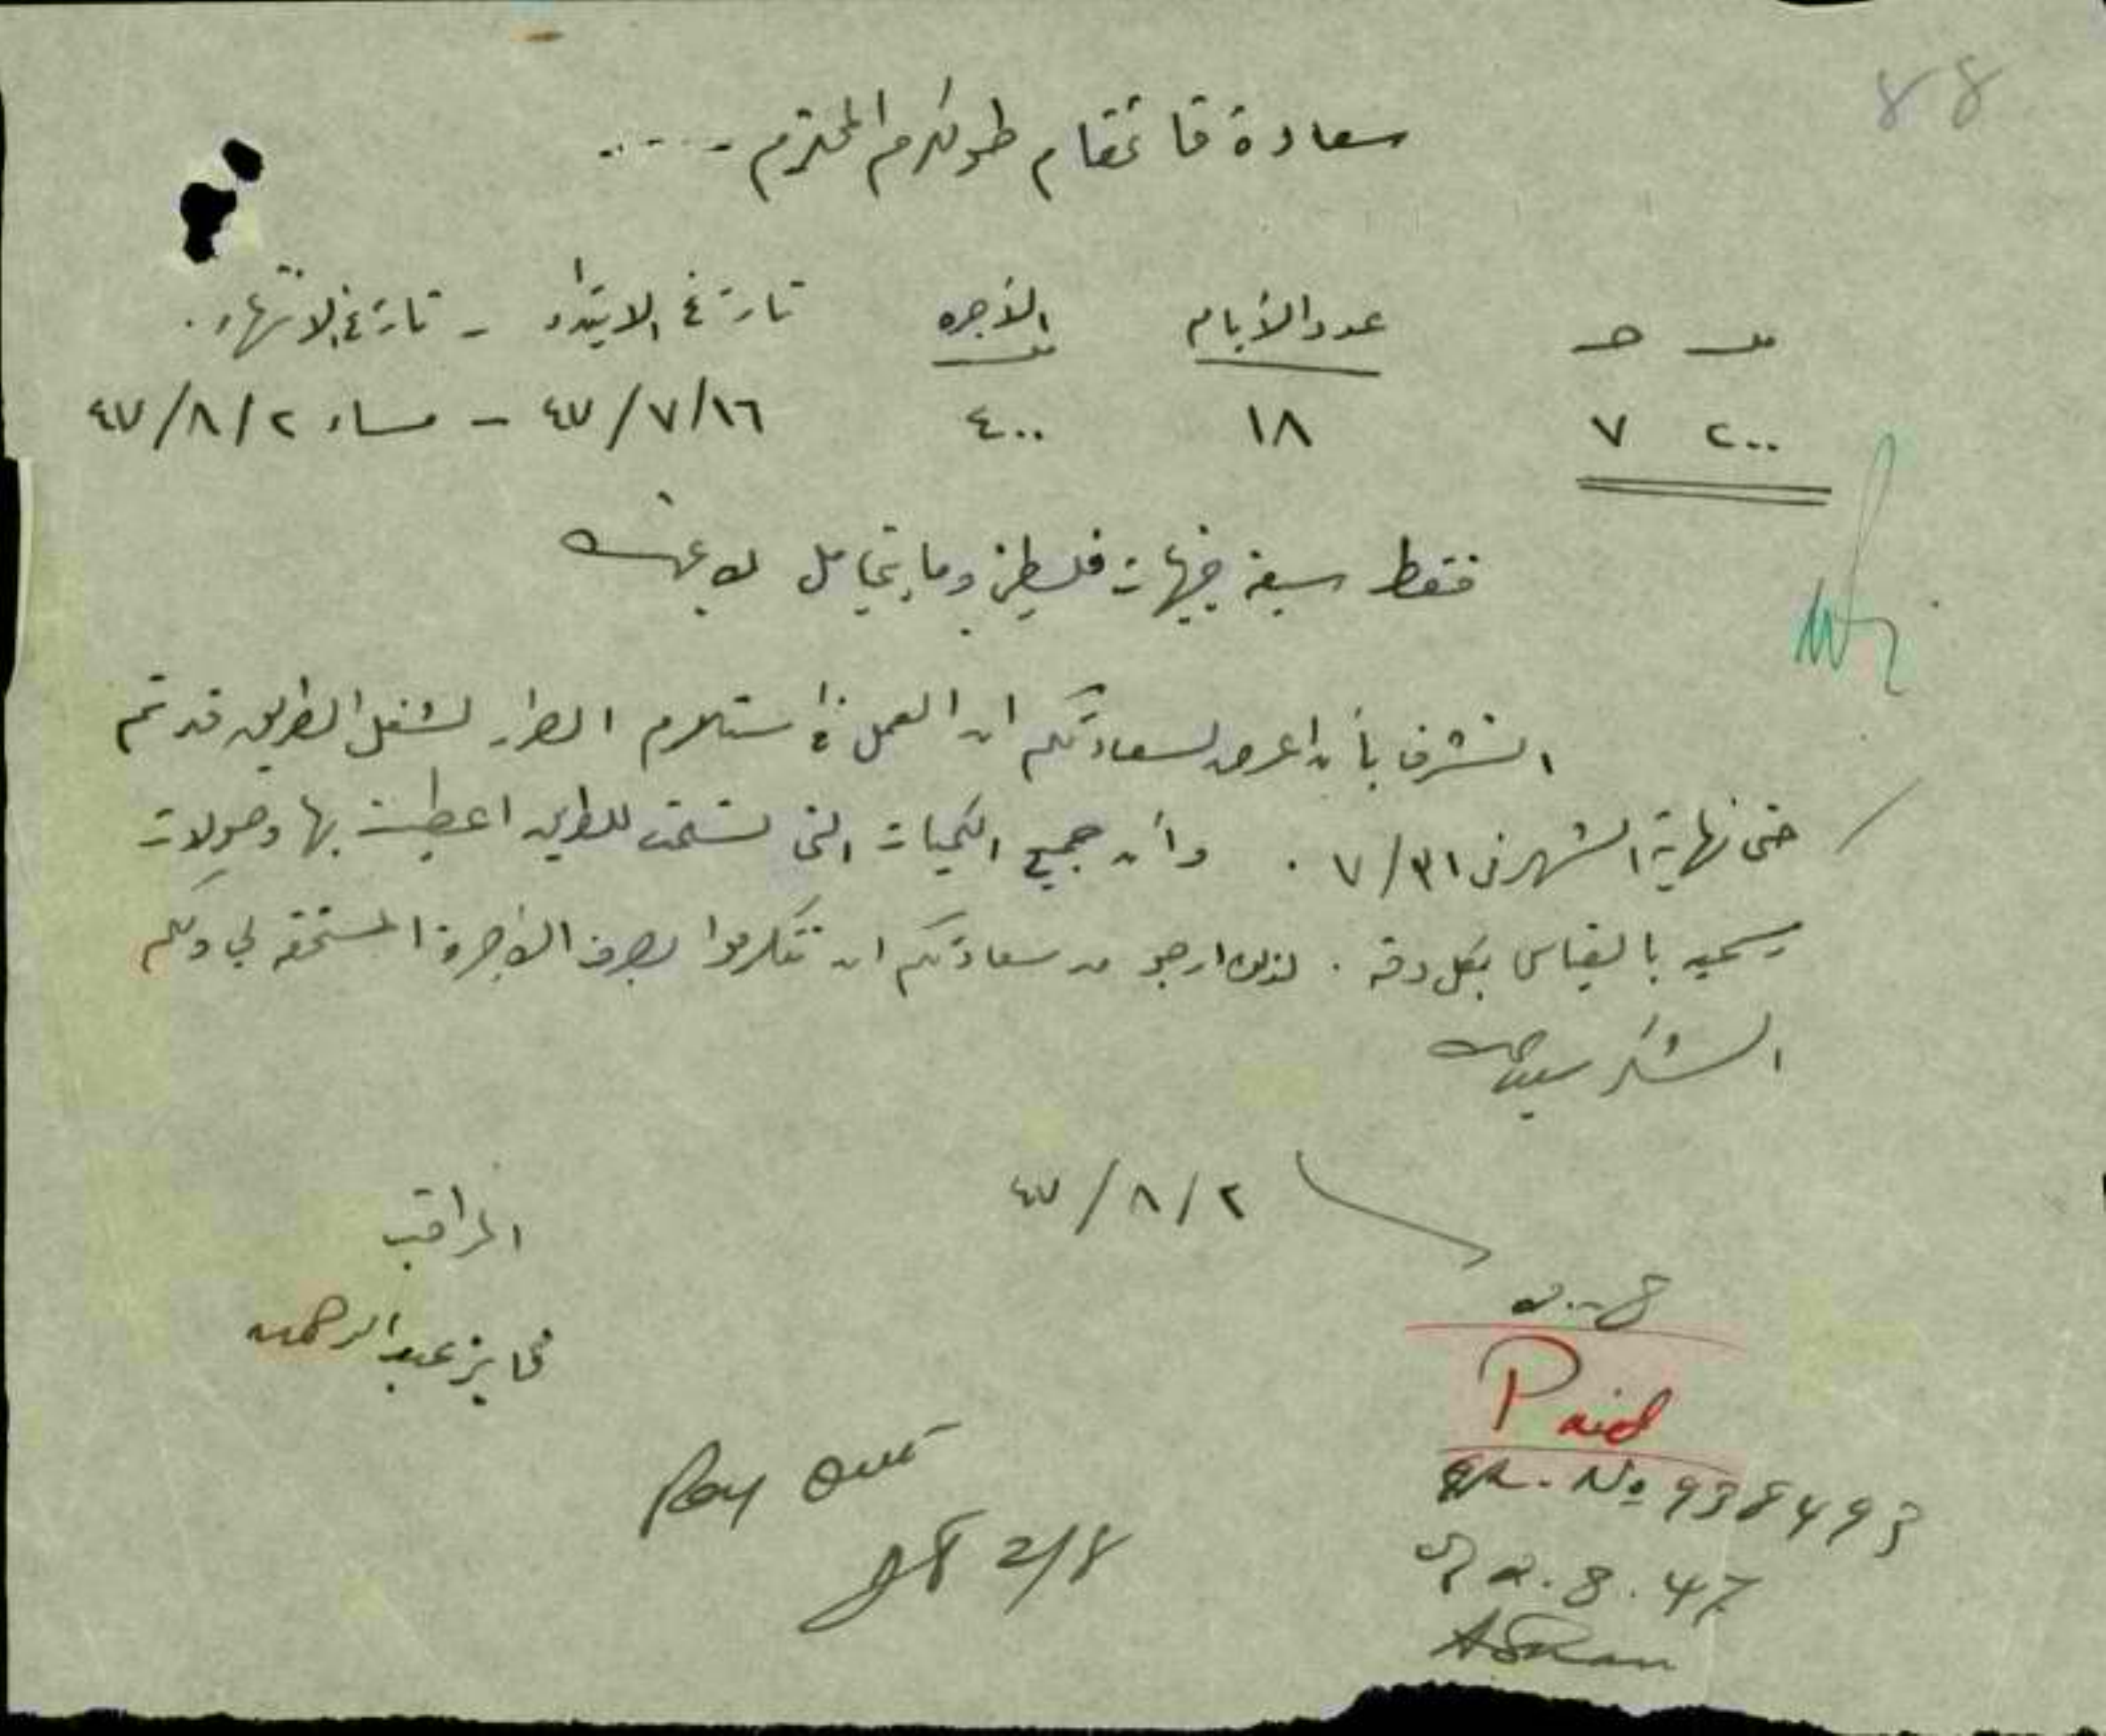 88
سعادة قائمقام طولكرم المحترم ....
مل جـ عدد الأيام الأجره تاريخ الابتداء - تاريخ الانتهاء.
مل
٢٠٠ ٧ ١٨ ٤٠٠ ٤٧/٧/١٦ - مساء ٤٧/٨/٢
فقط سبعة جنيهات فلسطيني ومايتي مل لا غير
اتشرف بأن اعرض لسعادتكم ان العمل في استلام الضرار لشغل الطريق قد تم
حتى نهاية الشهر في ٧/٣١ . وأن جميع الكميات التي للطريق اعطيت بها وصولات
رسميه بالقياس بكل دقه . لذلك ارجو من سعادتكم ان تتكرموا بصرف الأجرة المستحقه لي ولكم
الشكر سيدي
٤٧/٨/٢
المراقب
فايز عبد الرحمن
Paid
No 938493
2.8.47
Pay
2/8